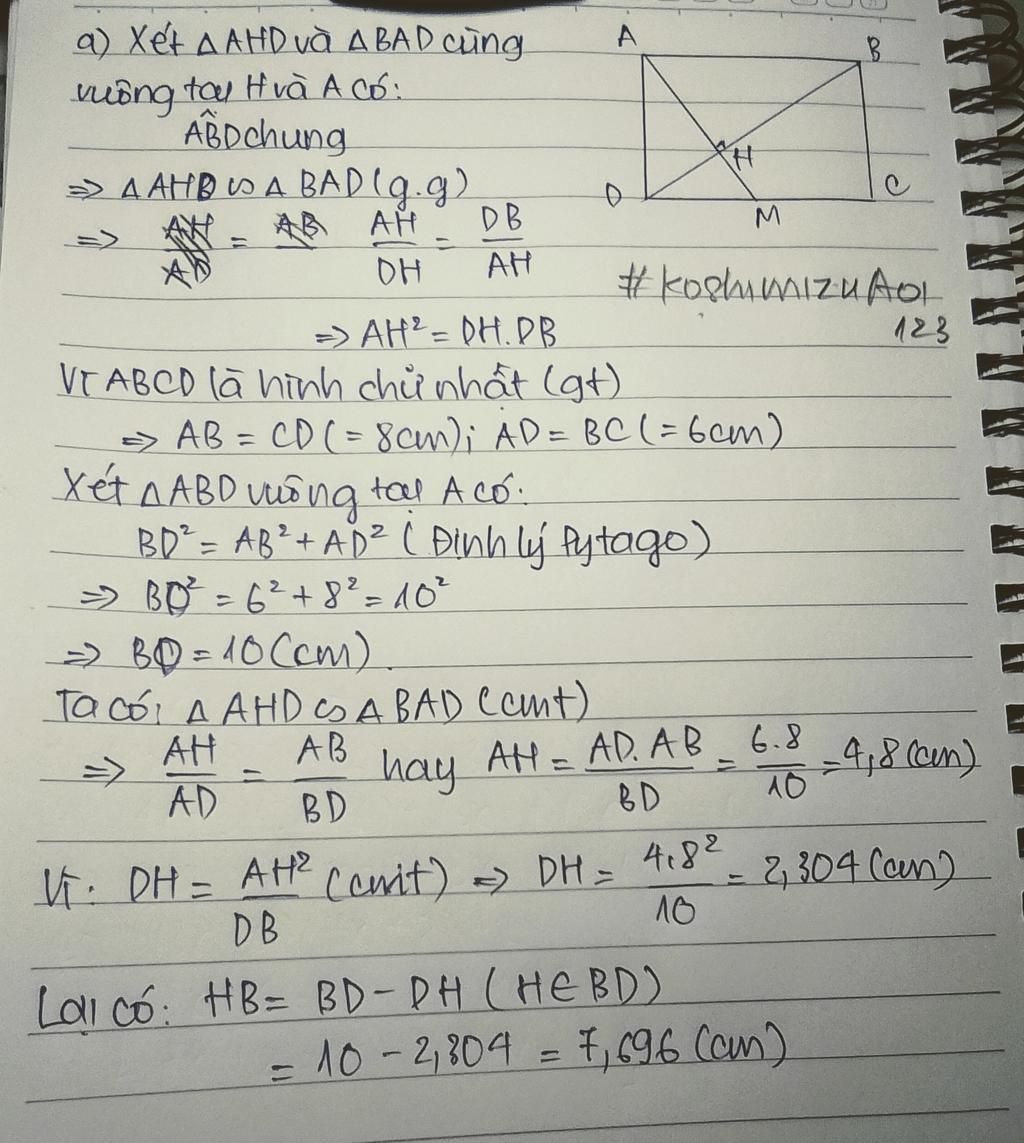 a) Xét △AHD và △BAD cùng
vuông tại H và A có:
ABD̂ chung
=> △AHD ∽ △BAD (g.g)
=> AH/AD = AB AH/DH = DB/AH
=> AH² = DH.DB
Vì ABCD là hình chữ nhật (gt)
=> AB = CD (= 8cm); AD = BC (= 6cm)
Xét △ABD vuông tại A có:
BD² = AB² + AD² (Định lý Pytago)
=> BD² = 6² + 8² = 10²
=> BD = 10 (cm).
Ta có: △AHD ∽ △BAD (cmt)
=> AH/AD = AB/BD hay AH = AD.AB/BD = 6.8/10 = 4,8 (cm)
Vì: DH = AH²/DB (cmt) => DH = 4,8²/10 = 2,304 (cm)
Lại có: HB = BD - DH (H∈BD)
= 10 - 2,304 = 7,696 (cm)
A
B
H
D
C
M
#KoshimizuAoi
123